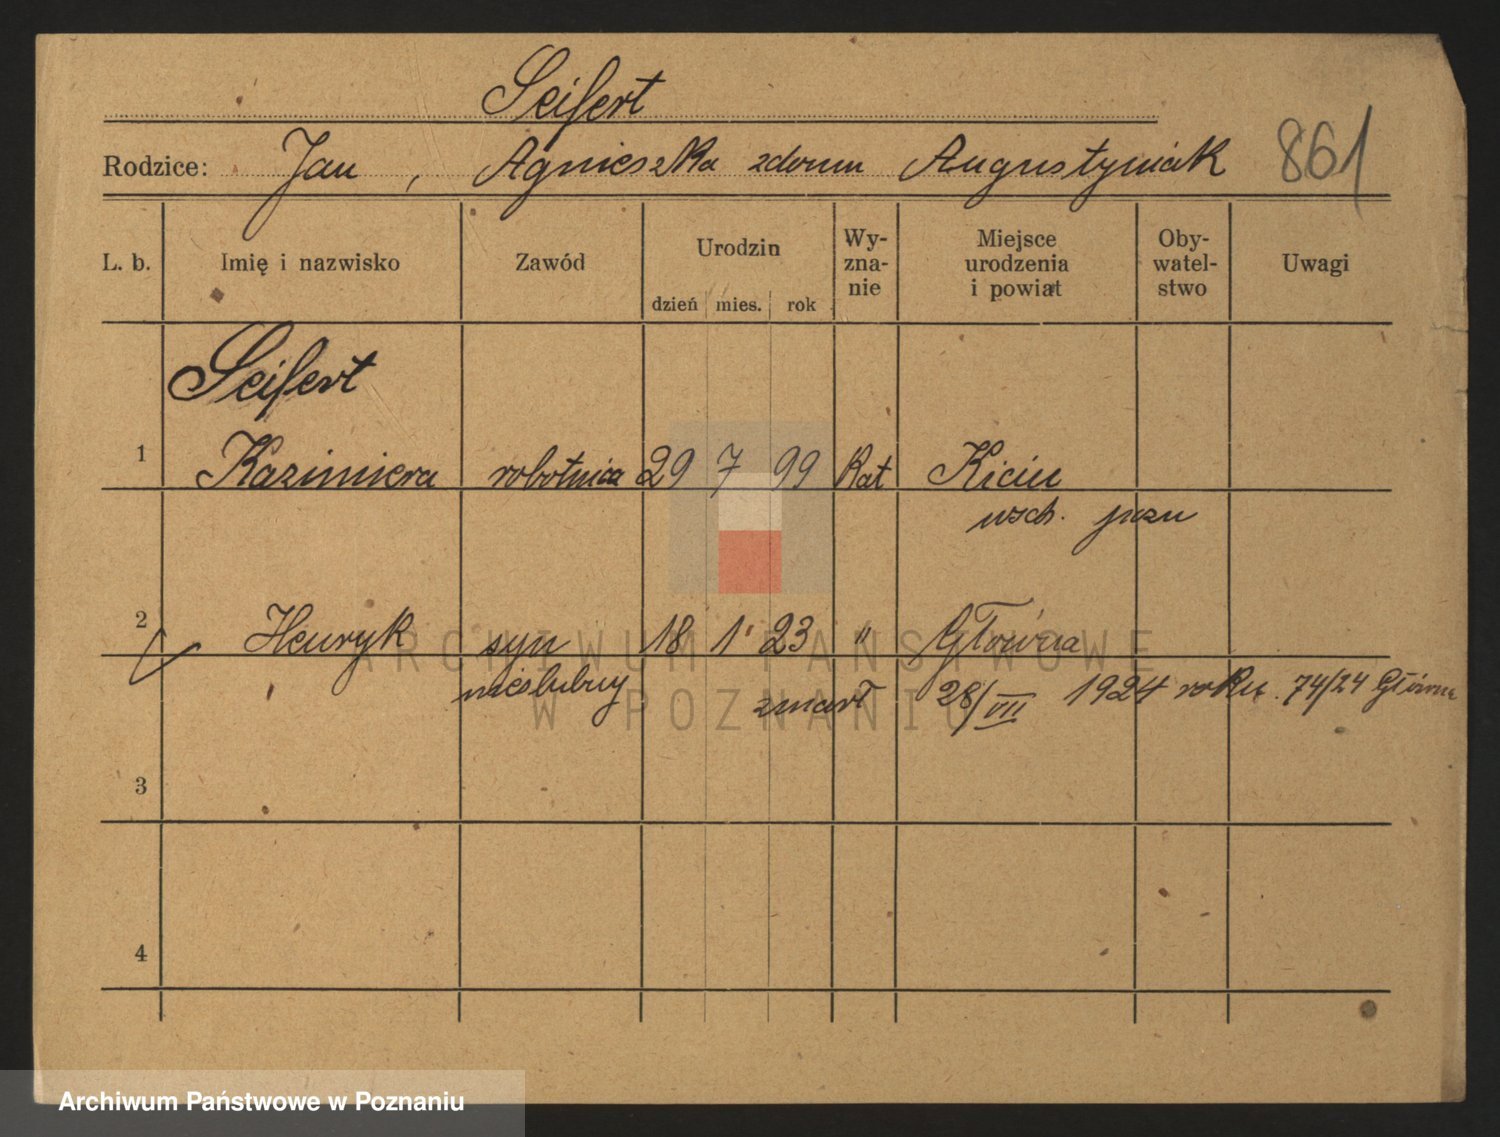 Seifert
Rodzice: Jan , Agnieszka z domu Augustyniak 861
L. b. Imię i nazwisko Zawód Urodzin Wy- zna- nie Miejsce urodzenia i powiat Oby- watel- stwo Uwagi
dzień mies. rok
Seifert
1 Kazimiera robotnica 29 7 99 Kat Kicin
wsch. pozn
2 Henryk syn 18 1 23 " Główna
nieślubny zmarł 28/VII 1924 roku. 74/24 Główna
3
4
ARCHIWUM PAŃSTWOWE
W POZNANIU
Archiwum Państwowe w Poznaniu